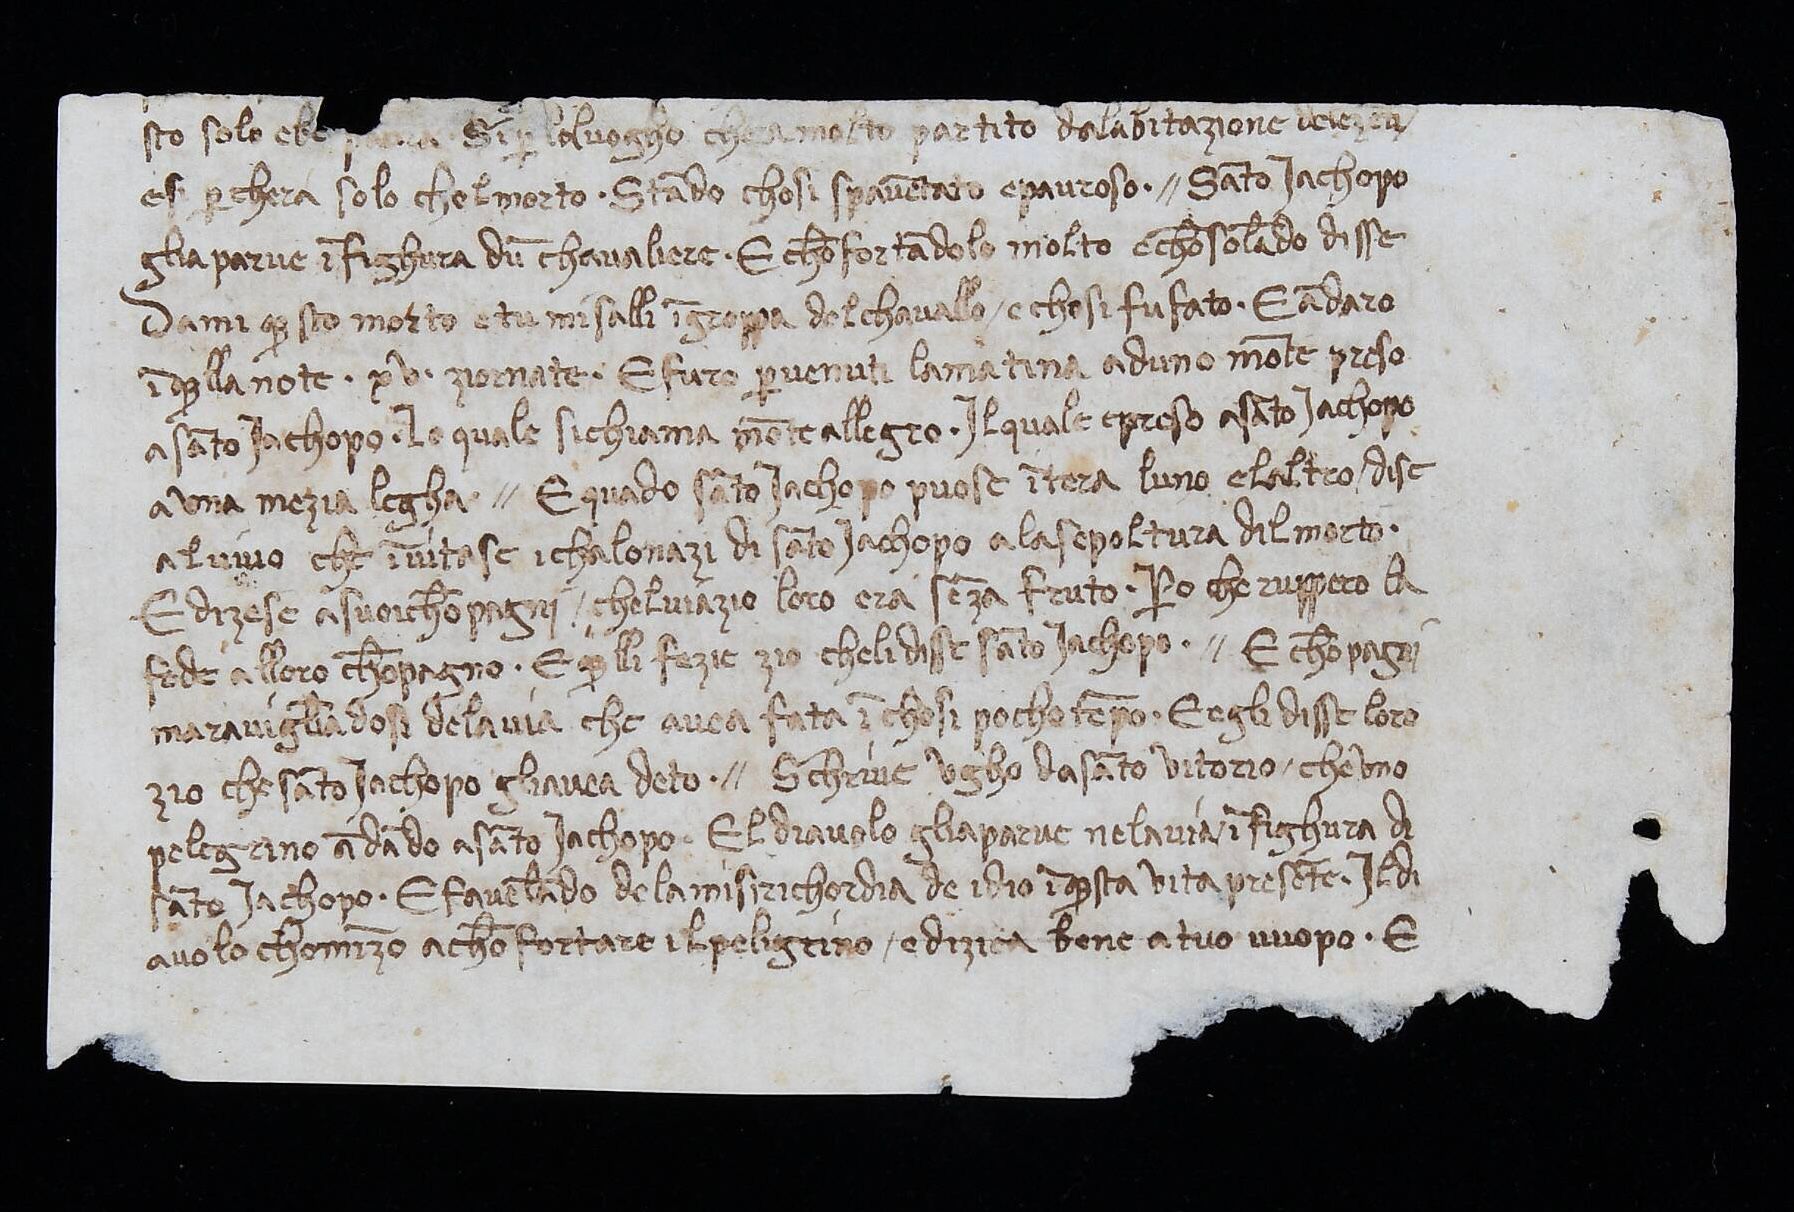 sto solo ebe paura. Si ꝑ loluogho chera molto partito dalabitazione
esi ꝑ chera solo chelmorto. Stādo chosi spauētato epauroso. // Sāto Jachopo
gliaparue ī fighura dū chavaliere. E chōfortādolo molto echōsolādo disse
Dami q̄sto morto etu mi salli īgroppa delchavallo / e chosi fu fato. E ādaro
īq̄lla note. xv. ziornate. E furo ꝑuenuti lamatina aduno mōte preso
asāto Jachopo. Lo quale sichiama mōte allegro. Il quale epreso asāto Jachopo
auna mezia legha. // E quādo sāto Jachopo puose ītera luno elaltro / dise
aluiuo che īuitase ichalonazi di sāto Jachopo alasepoltura dilmorto.
E dizese asuoichōpagni / chelviazio loro era sēza fruto. Ꝑo che ruppero la
fede alloro chōpagno. E q̄lli fezie zio chelidisse sāto Jachopo. // E chōpagni
maravigliādosi delavia che avea fata ī chosi pocho tēpo. E egli disse loro
zio che sāto Jachopo gliavea deto. // Schriue Vgho dasāto Vitorio / che vno
pelegrino ādādo asāto Jachopo. El diauolo gliaparue nelavia / ī fighura di
sāto Jachopo. E favelādo delamisirichordia de idio īq̄sta vita presēte. Il di
auolo chomīzo achōfortare ilpeligrino / e dizica bene atuo uuopo. E